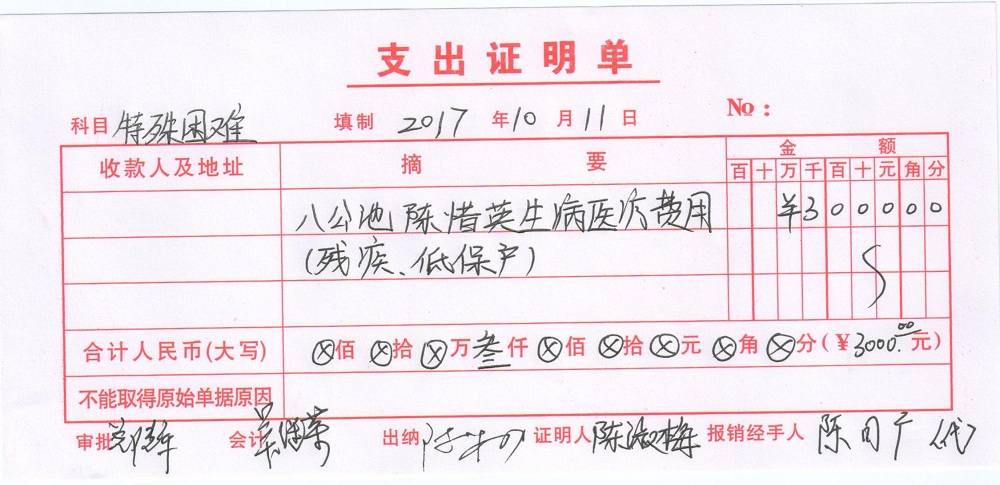 支出证明单
科目 特殊困难 填制 2017 年 10 月 11 日 No：
收款人及地址 摘 要 金 额
百 十 万 千 百 十 元 角 分
八公池陈惜英生病医疗费用 ¥300000
(残疾、低保户)
合计人民币(大写) ⊗佰 ⊗拾 ⊗万 叁仟 ⊗佰 ⊗拾 ⊗元 ⊗角 ⊗分(¥3000.00元)
不能取得原始单据原因
审批 会计 出纳 证明人 陈淑梅 报销经手人 陈同广(代)